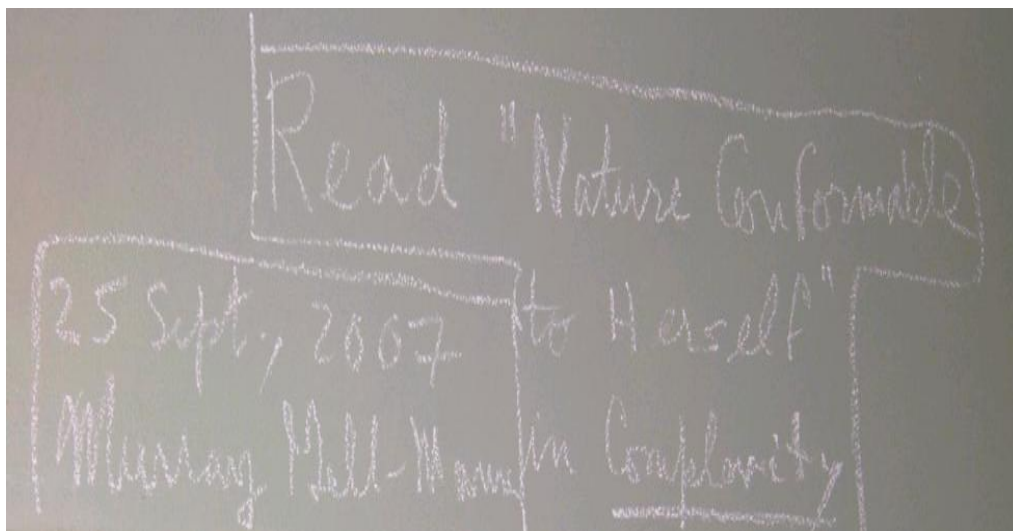 Read "Nature Conformable
to Herself"
in Complexity
25 Sept., 2007
Murray Gell-Mann